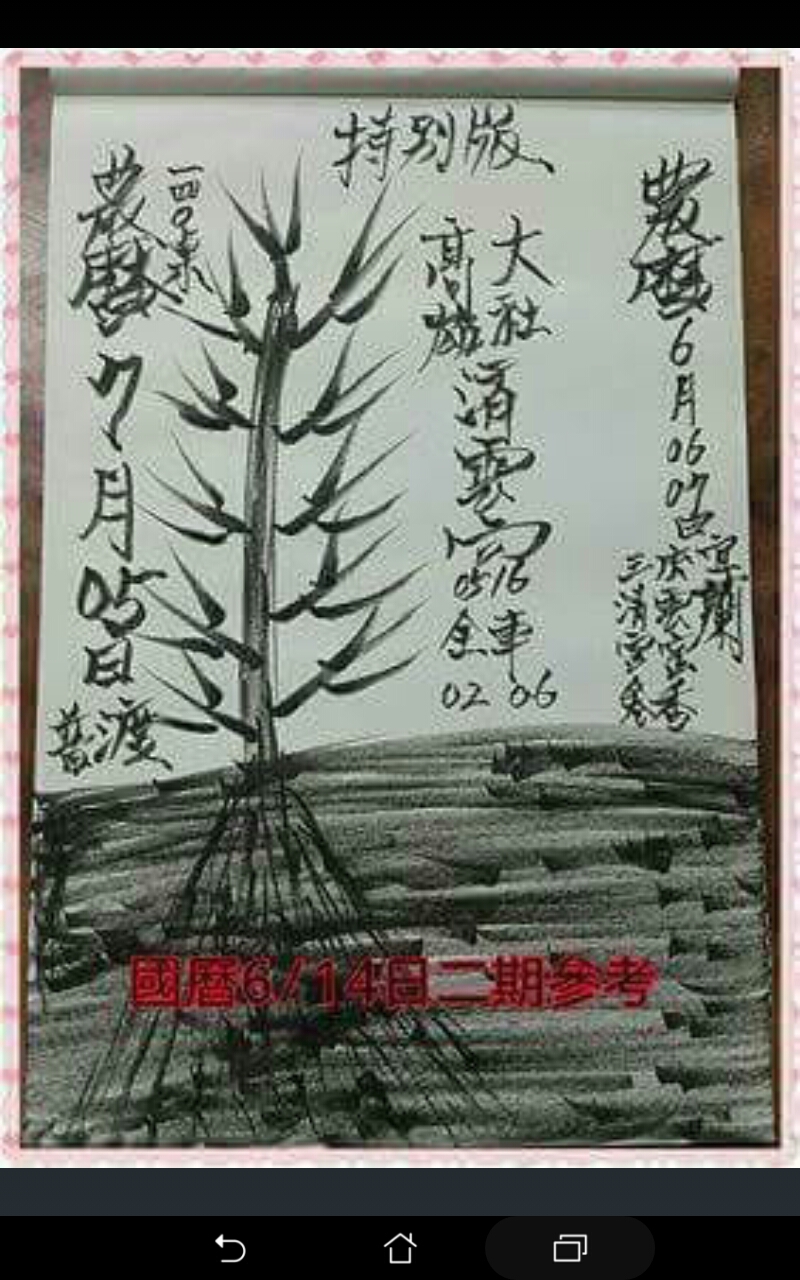 特別版
農曆6月06 07日
宜蘭
庆雲宮香
三清宮
大社
高雄
清雲宮
05 16
全車
02 06
農曆7月05日
普渡
國曆6/14日二期參考